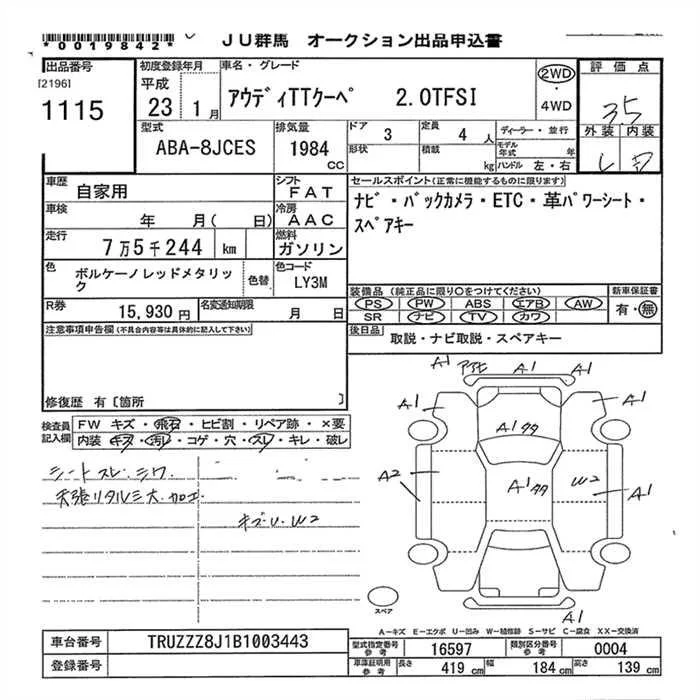 *0019842*
JU群馬 オークション出品申込書
出品番号
[2196]
1115
初度登録年月
平成
23 1月
車名・グレード
アウディTTクーペ 2.0TFSI
2WD
・
4WD
評価点
3.5
外装 内装
型式
ABA-8JCES
排気量
1984
cc
ドア
3
定員
4 人
形状
積載
kg
ディーラー・並行
モデル年式 年
ハンドル 左・右
車歴
自家用
シフト
FAT
車検
年 月( 日)
冷房
AAC
走行
7万5千244 km
燃料
ガソリン
色
ボルケーノレッドメタリック
色替
色コード
LY3M
R券
15,930円
名変通知期限
月 日
セールスポイント(正常に機能するものに限ります)
ナビ・バックカメラ・ETC・革パワーシート・
スペアキー
装備品(純正品に限り〇をつけてください)
PS PW ABS エアB AW
SR ナビ TV カワ
新車保証書
有・無
後日品
取説・ナビ取説・スペアキー
注意事項申告欄(不具合内容等は具体的に記入して下さい)
修復歴 有[箇所 ]
検査員
記入欄
FW キズ・飛石・ヒビ割・リペア跡・×要
内装 キズ・汚レ・コゲ・穴・スレ・キレ・破レ
シートスレ.シワ
キズU.W2
A1
A1
A1
A1
A1
A1
A2
W2
A1
A1
スペア
A-キズ E-エクボ U-凹み W-補修跡 S-サビ C-腐食 XX-交換済
車台番号
TRUZZZ8J1B1003443
登録番号
型式指定番号
参考
16597
類別区分番号
参考
0004
車庫証明用
参考
長さ
419 cm
幅
184 cm
高さ
139 cm